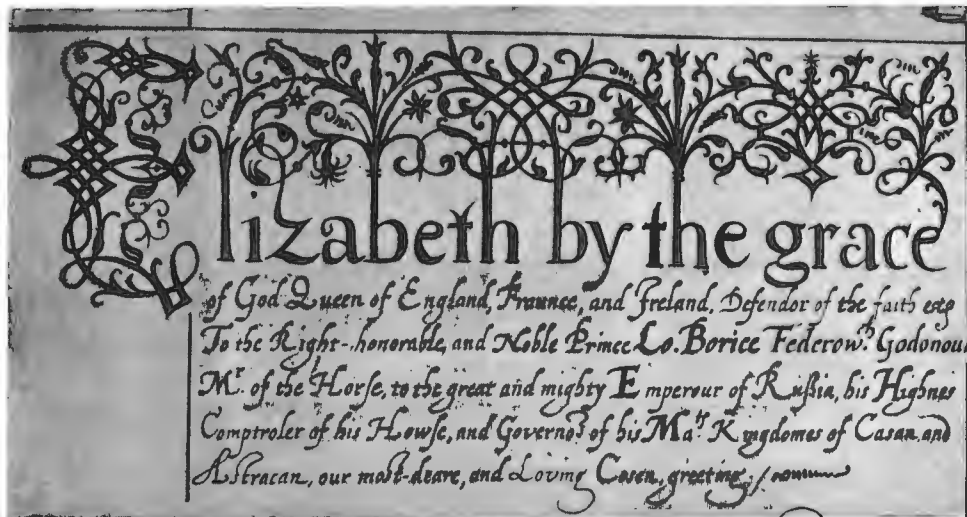 Elizabeth by the grace
of God Queen of England, Fraunce, and Ireland, Defendor of the faith etc
To the Right-honorable, and Noble Prince Lo. Borice Federowᶜʰ Godonou
Mʳ. of the Horse, to the great and mighty Emperour of Rußia, his Highnes
Comptroler of his Howse, and Governoʳ of his Maᵗˢ Kingdomes of Casan and
Astracan, our most-deare, and Loving Cosen, greeting